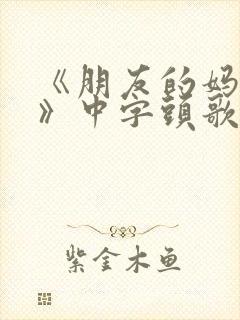 《朋友的妈
》中字頭歌
紫金木鱼